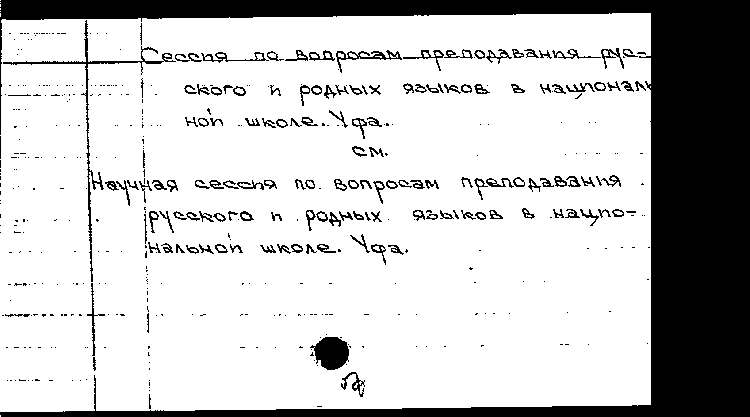 Сессия по вопросам преподавания рус-
ского и родных языков в националь
ной школе. Уфа.
см.
Научная сессия по вопросам преподавания
русского и родных языков в нацио-
нальной школе. Уфа.